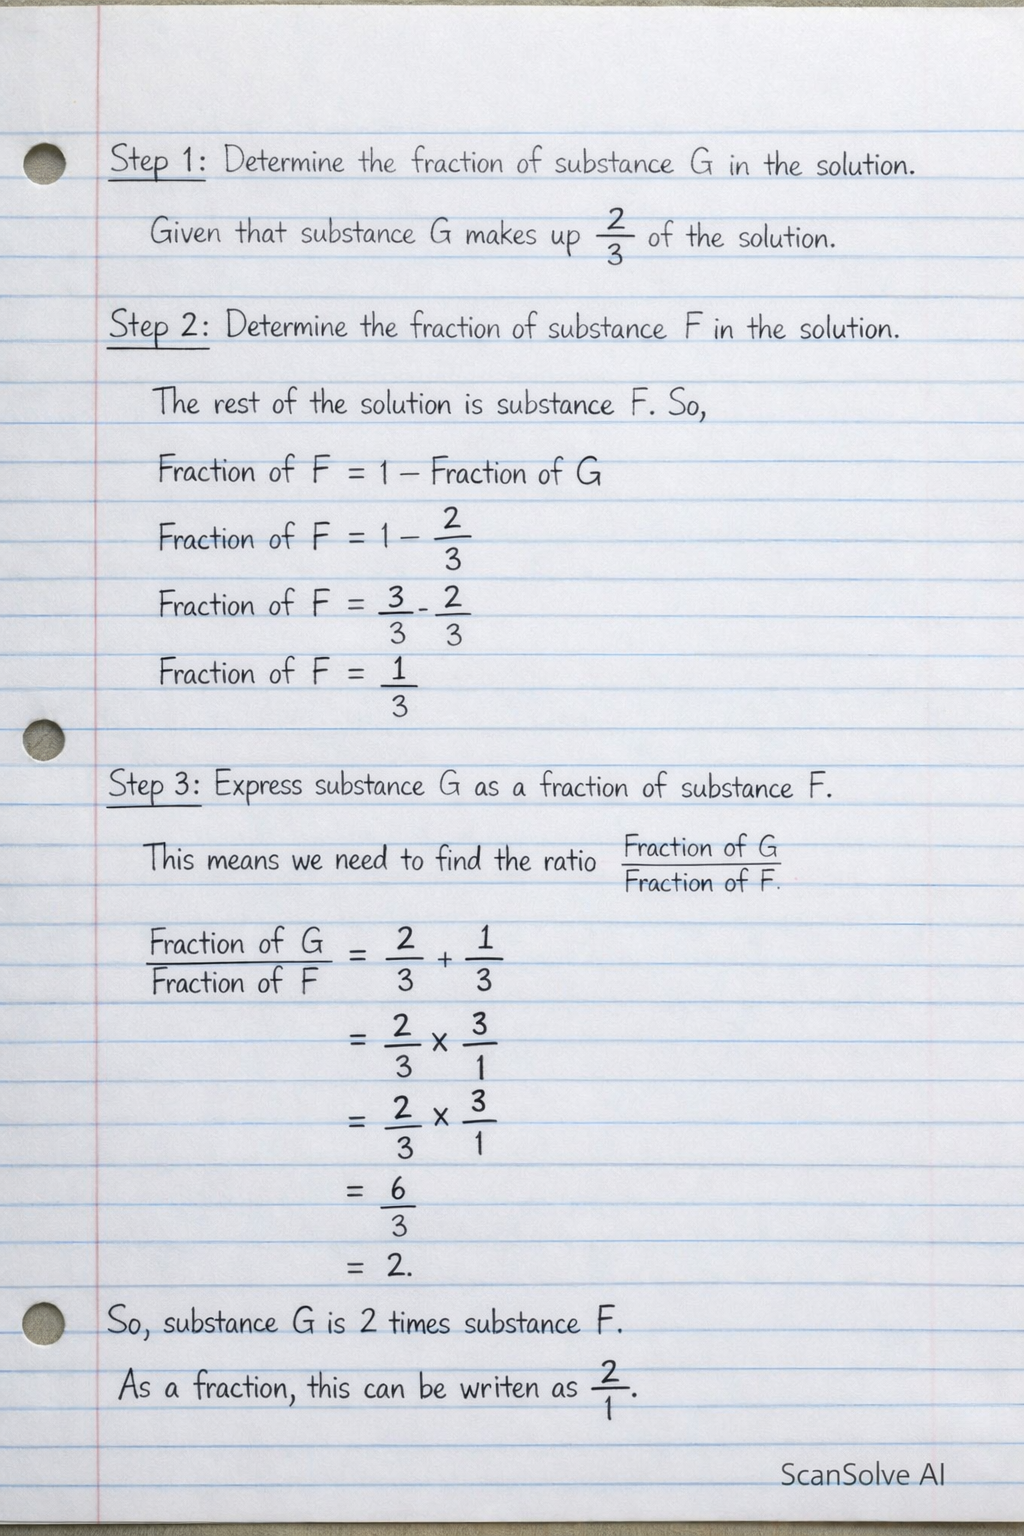 Step 1: Determine the fraction of substance G in the solution.
Given that substance G makes up 2/3 of the solution.
Step 2: Determine the fraction of substance F in the solution.
The rest of the solution is substance F. So,
Fraction of F = 1 − Fraction of G
Fraction of F = 1 − 2/3
Fraction of F = 3/3 - 2/3
Fraction of F = 1/3
Step 3: Express substance G as a fraction of substance F.
This means we need to find the ratio Fraction of G/Fraction of F.
Fraction of G/Fraction of F = 2/3 + 1/3
= 2/3 × 3/1
= 2/3 × 3/1
= 6/3
= 2.
So, substance G is 2 times substance F.
As a fraction, this can be writen as 2/1.
ScanSolve AI